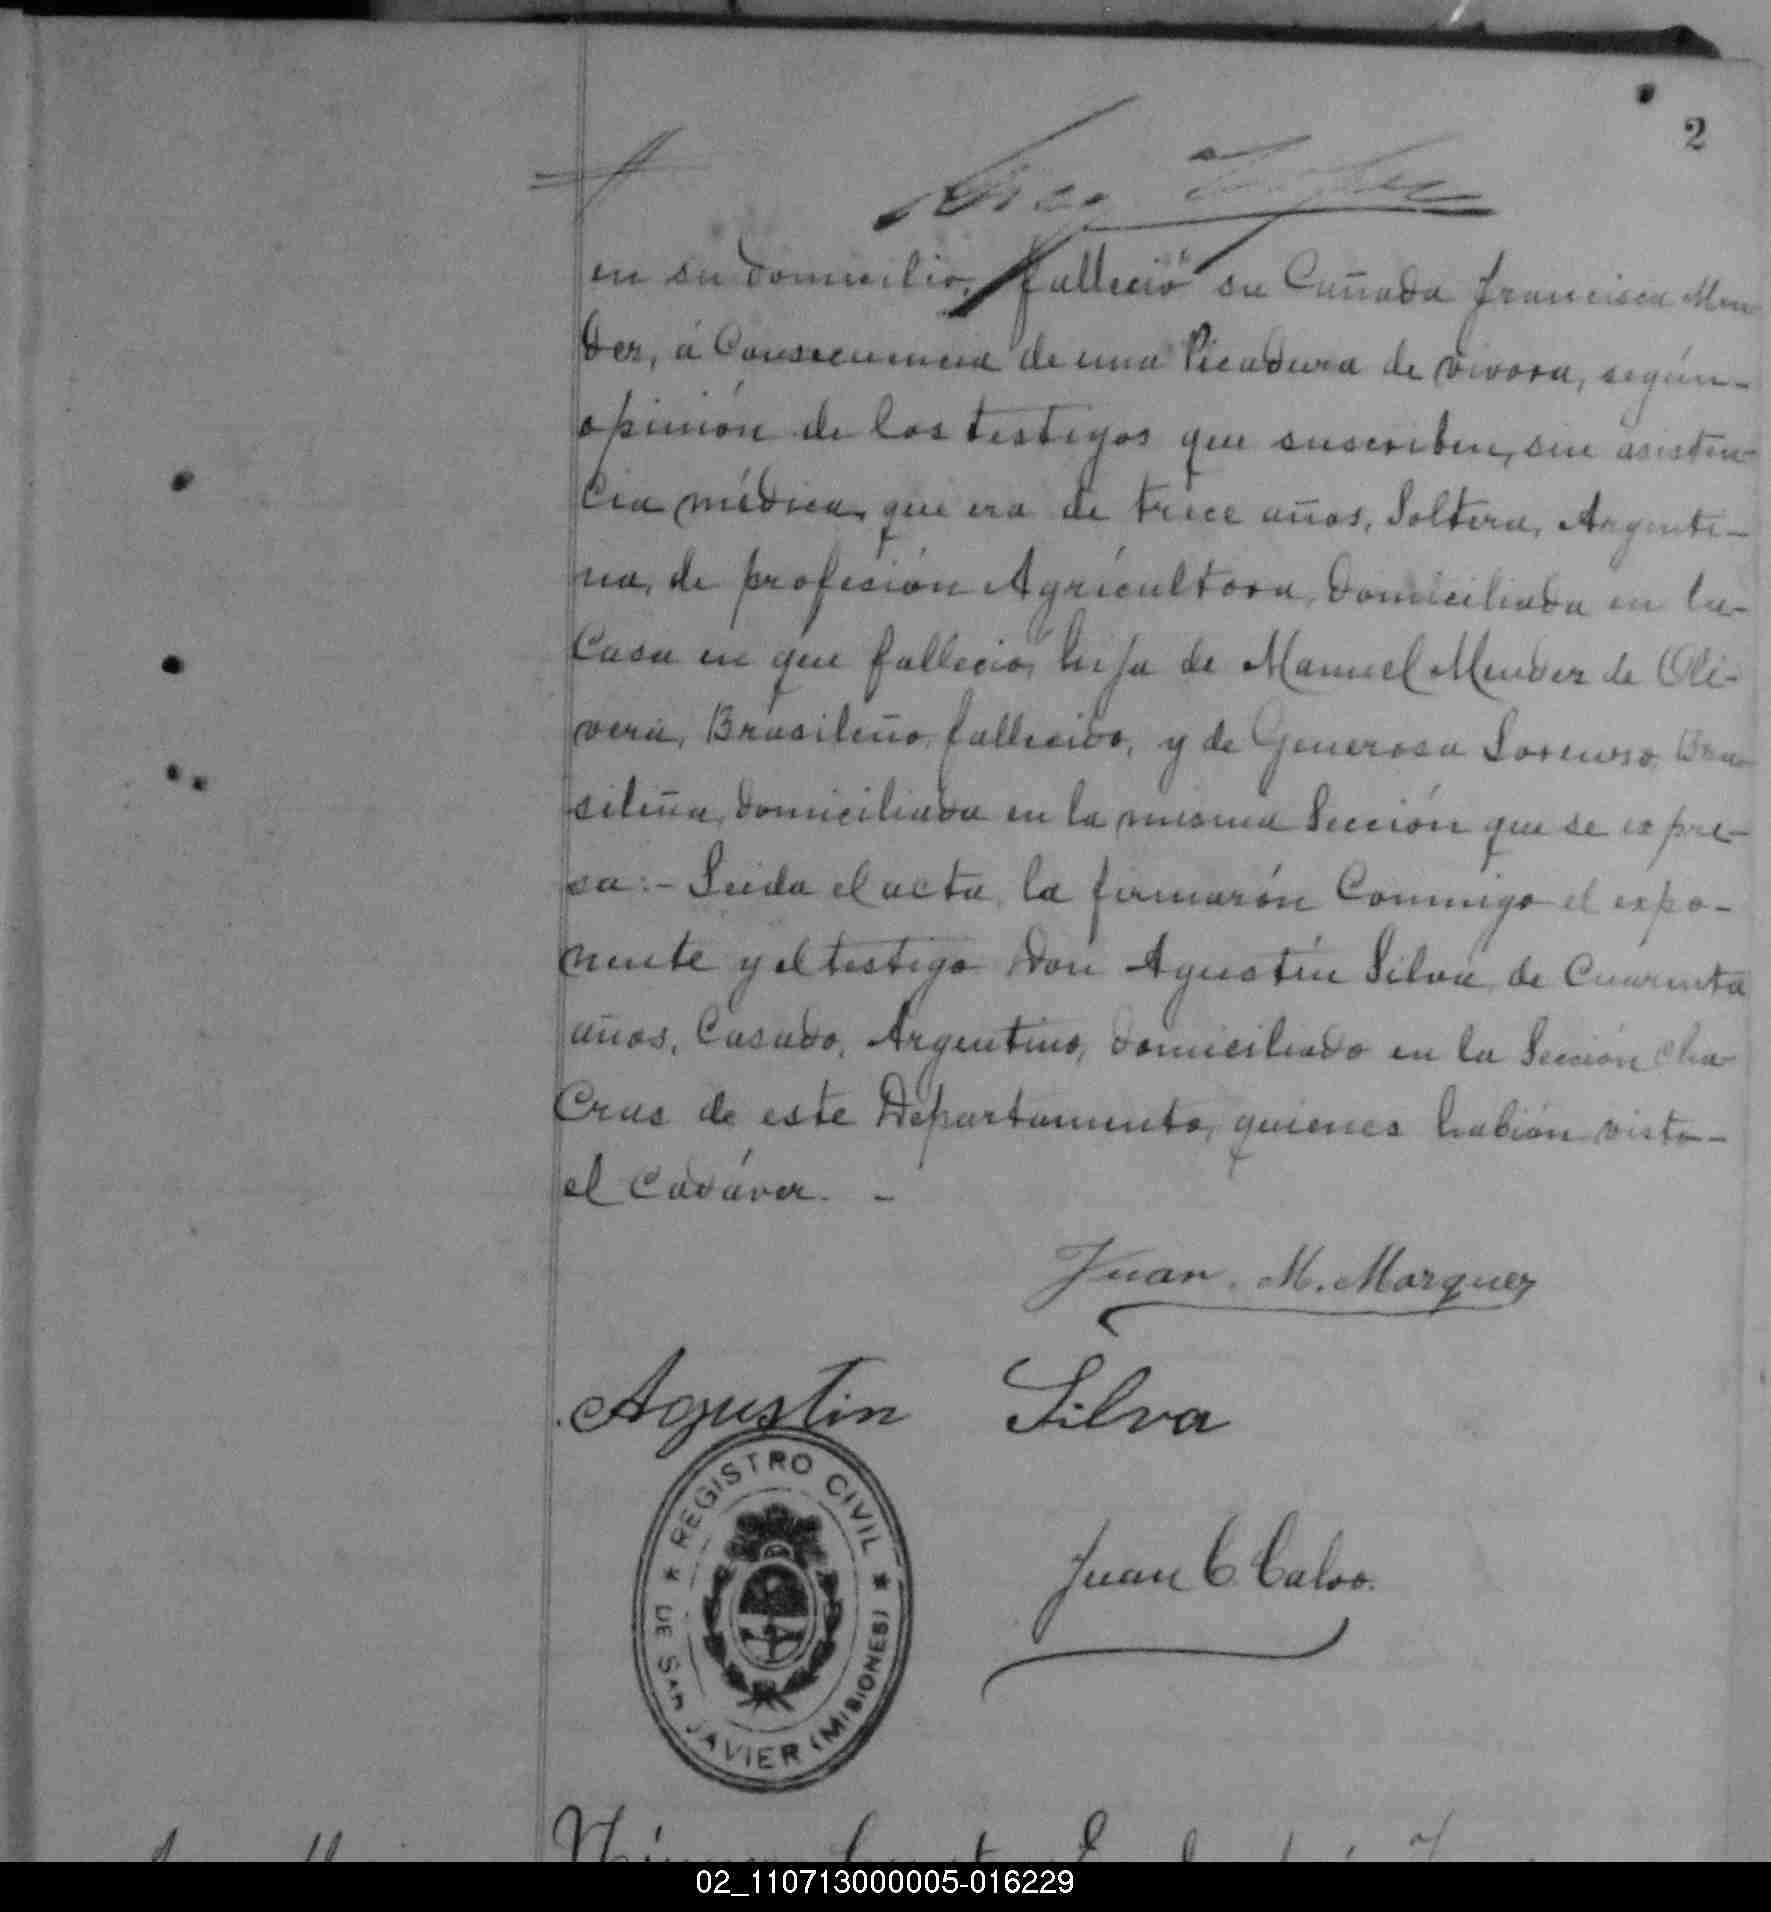 2
en su domicilio, falleció su Cuñada Francisca Men
des, á Consecuencia de una Picadura de vivora, según-
opinión de los testigos que suscriben, sin asisten-
cia médica, que era de trece años, Soltera, Argenti-
na, de profesión Agricultora, domiciliada en la-
Casa en que falleció, hija de Manuel Mendes de Oli-
vera, Brasileño, fallecido, y de Generosa Lorenso, Bra-
sileña, domiciliada en la misma Sección que se expre-
sa:- Leída el acta, la firmarón Conmigo el expo-
nente y el testigo Don Agustín Silva, de Cuarenta
años, Casado, Argentino, domiciliado en la Sección Cha-
Cras de este Departamento, quienes habián visto-
el Cadáver. -
Juan M. Marquez
Agustin Silva
REGISTRO CIVIL
DE SAN JAVIER (MISIONES)
Juan C. Calvo.
02_110713000005-016229